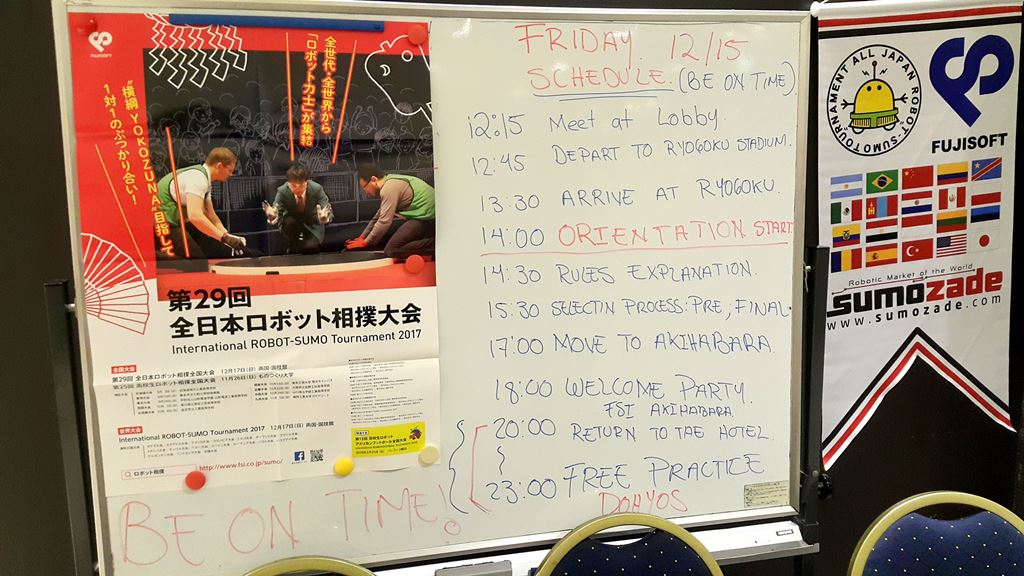 FUJISOFT
全世代・全世界から
「ロボット力士」が集結
"横綱 YOKOZUNA"目指して
1対1のぶつかり合い!
第29回
全日本ロボット相撲大会
International ROBOT-SUMO Tournament 2017
全国大会
第29回 全日本ロボット相撲全国大会 12月17日(日) 両国・国技館
第25回 高校生ロボット相撲全国大会 11月26日(日) ものつくり大学
世界大会
International ROBOT-SUMO Tournament 2017 12月17日(日) 両国・国技館
ロボット相撲
http://www.fsi.co.jp/sumo/
BE ON TIME!
FRIDAY 12/15
SCHEDULE. (BE ON TIME)
12:15 Meet at Lobby.
12:45 DEPART TO RYOGOKU STADIUM.
13:30 ARRIVE AT RYOGOKU.
14:00 ORIENTATION START
14:30 RULES EXPLANATION.
15:30 SELECTIN PROCESS: PRE, FINAL.
17:00 MOVE TO AKIHABARA.
18:00 WELCOME PARTY.
FSI AKIHABARA
20:00 RETURN TO THE HOTEL.
23:00 FREE PRACTICE
DOHYOS
TOURNAMENT ALL JAPAN ROBOT-SUMO
FUJISOFT
Robotic Market of the World
sumozade
www.sumozade.com